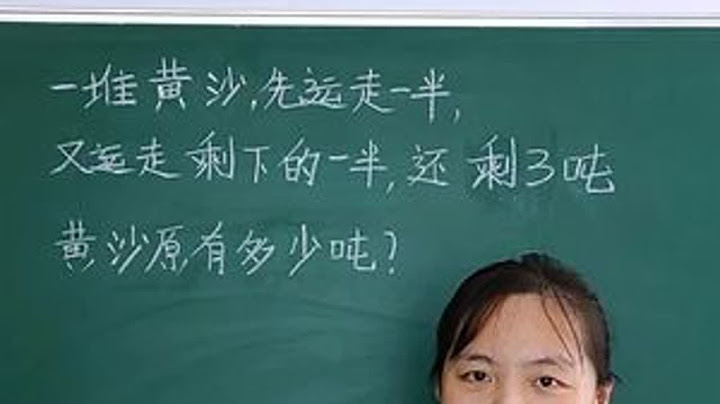 一堆黄沙,先运走一半,
又运走剩下的一半,还剩3吨
黄沙原有多少吨?